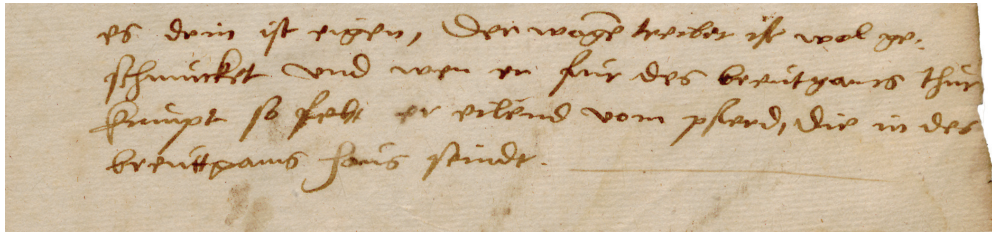 es drin ist eigen, Der wagē treiber ist wol ge-
schmücket vnd wen er für des breütgams thür
kumpt so felt er eilend vom pferd, die in des
breüttgams haus seindt.